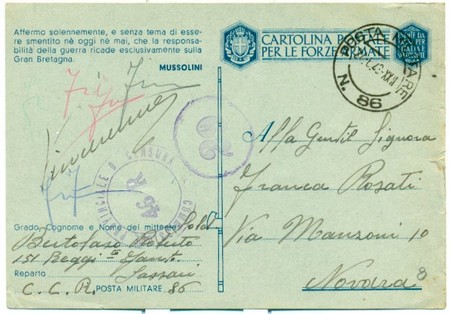 Affermo solennemente, e senza tema di esse-
re smentito nè oggi nè mai, che la responsa-
bilità della guerra ricade esclusivamente sulla
Gran Bretagna.
MUSSOLINI
CARTOLINA POSTALE
PER LE FORZE ARMATE
POSTA MILITARE
N. 86
Alla Gentil Signora
Franca Rosati
Via Manzoni 10
Novara
CENSURA
Grado, Cognome e Nome del mittente Sold
Bertolaso Roberto
151 Regg. Fant.
Reparto Sassari
C. C. R. POSTA MILITARE 86